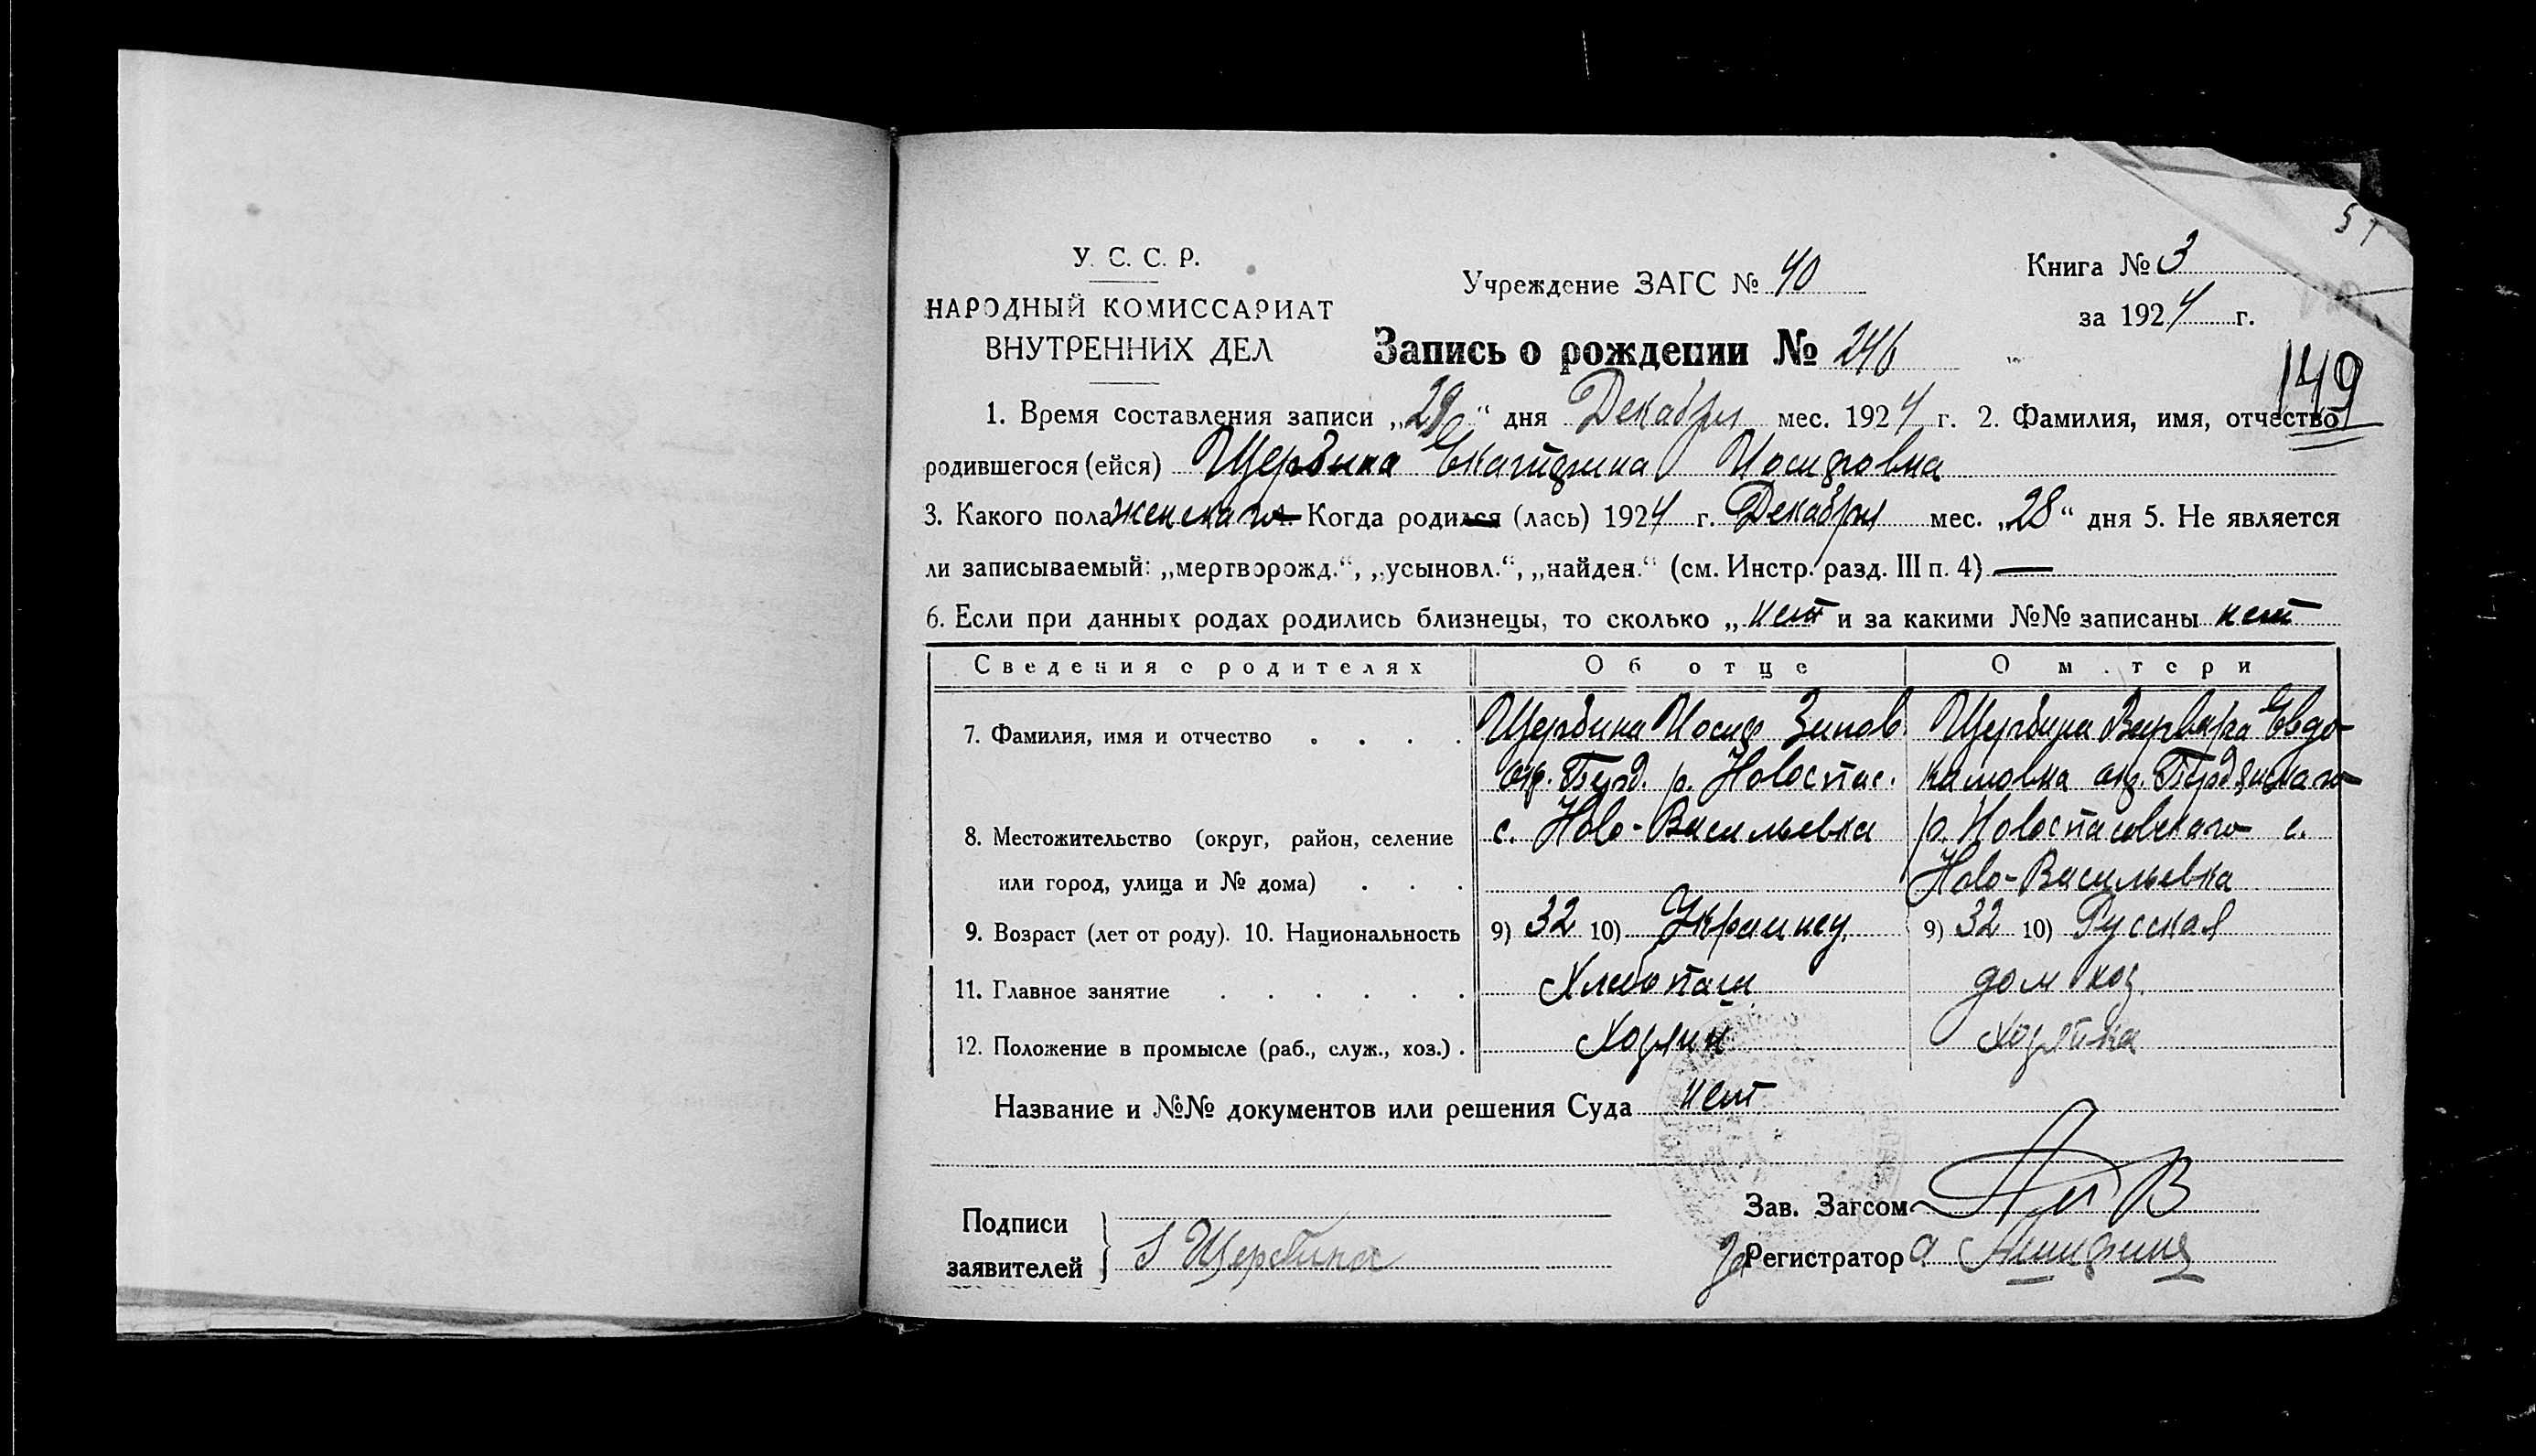 51
У. С. С. Р.
НАРОДНЫЙ КОМИССАРИАТ
ВНУТРЕННИХ ДЕЛ
Учреждение ЗАГС № 40
Книга № 3
за 1924 г.
Запись о рождении № 246
149
1. Время составления записи „29“ дня Декабря мес. 1924 г. 2. Фамилия, имя, отчество
родившегося (ейся) Щербина Екатерина Иосифовна
3. Какого пола женскаго Когда родился (лась) 1924 г. Декабря мес. „28“ дня 5. Не является
ли записываемый: „мертворожд.“, „усыновл.“, „найден.“ (см. Инстр. разд. III п. 4) —
6. Если при данных родах родились близнецы, то сколько „ нет и за какими №№ записаны нет
Сведения о родителях Об отце О м.тери
7. Фамилия, имя и отчество . . . . Щербина Иосиф Зинов. Щербина Варвара Евдо-
окр. Берд. р. Новоспас. кимовна окр. Бердянскаго
8. Местожительство (округ, район, селение с. Ново-Васильевка р. Новоспасовскаго с.
или город, улица и № дома) . . . Ново-Васильевка
9. Возраст (лет от роду). 10. Национальность 9) 32 10) Украинец 9) 32 10) Русская
11. Главное занятие . . . . . . Хлебопаш. дом хоз.
12. Положение в промысле (раб., служ., хоз.) .
Название и №№ документов или решения Суда нет
Подписи
заявителей } Щербина
Зав. Загсом
За Регистратор